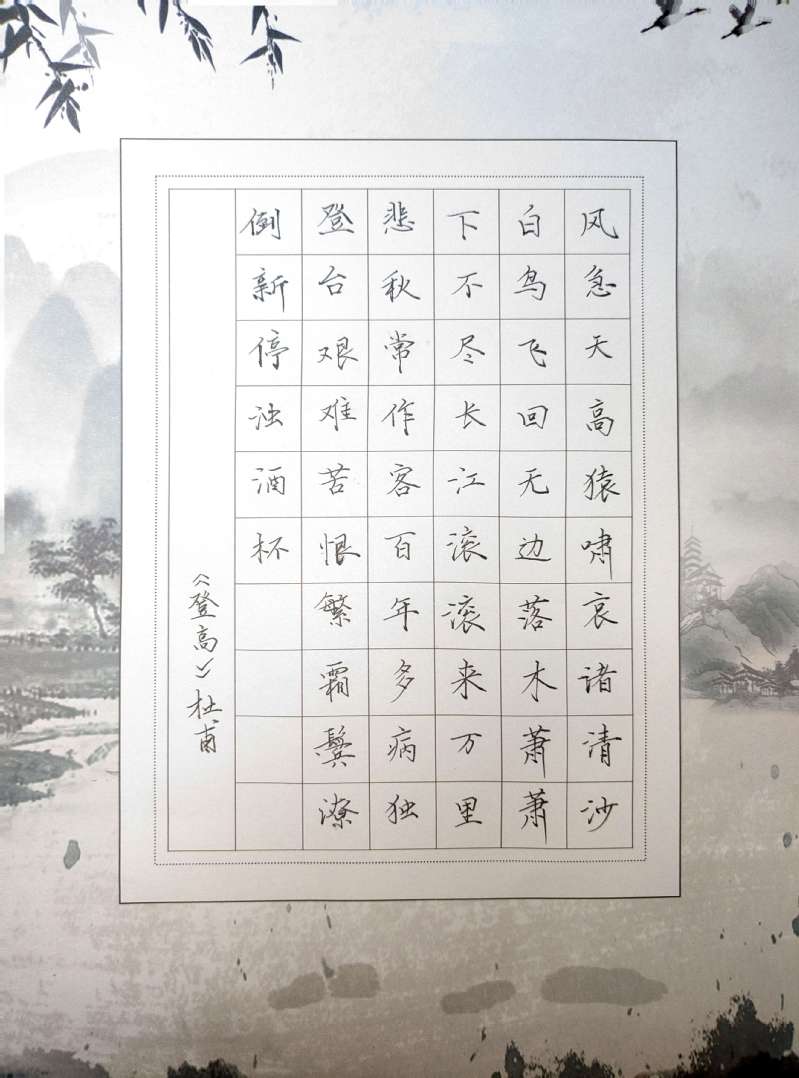 风急天高猿啸哀诸清沙
白鸟飞回无边落木萧萧
下不尽长江滚滚来万里
悲秋常作客百年多病独
登台艰难苦恨繁霜鬓潦
倒新停浊酒杯
《登高》杜甫